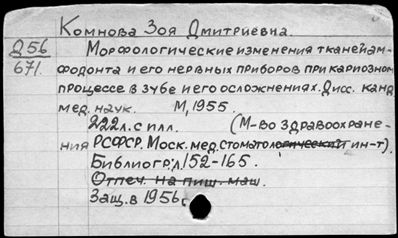 Комнова Зоя Дмитриевна.
Д56 Морфологические изменения тканей ам-
671. фодонта и его нервных приборов при кариозном
процессе в зубе и его осложнениях. Дисс. канд.
мед. наук. М, 1955.
222 л. с илл. (М-во здравоохране-
ния РСФСР. Моск. мед. стоматологический ин-т).
Библиогр: л. 152-165.
Отпеч. на пиш. маш.
Защ. в 1956г.